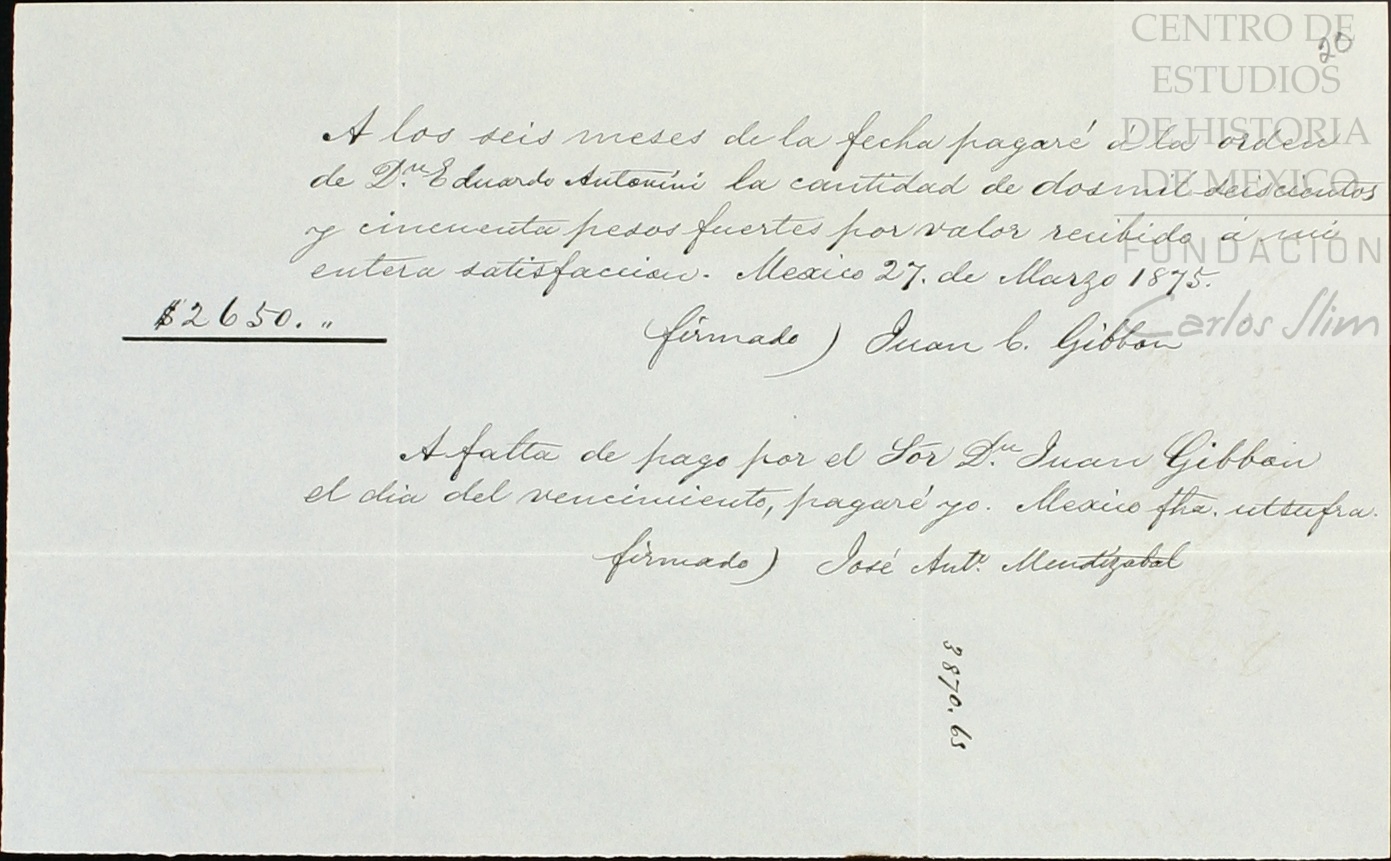 CENTRO DE
ESTUDIOS
DE HISTORIA
DE MEXICO
FUNDACIÓN
Carlos Slim
20
A los seis meses de la fecha pagaré á la orden
de D.n Eduardo Antonini la cantidad de dosmil seiscientos
y cincuenta pesos fuertes por valor recibido á mi
entera satisfaccion. Mexico 27. de Marzo 1875.
$2650. "
firmado ) Juan C. Gibbon
A falta de pago por el Sor D.n Juan Gibbon
el dia del vencimiento, pagaré yo. Mexico fha. utsufra.
firmado ) José Anto. Mendizabal
3870.65